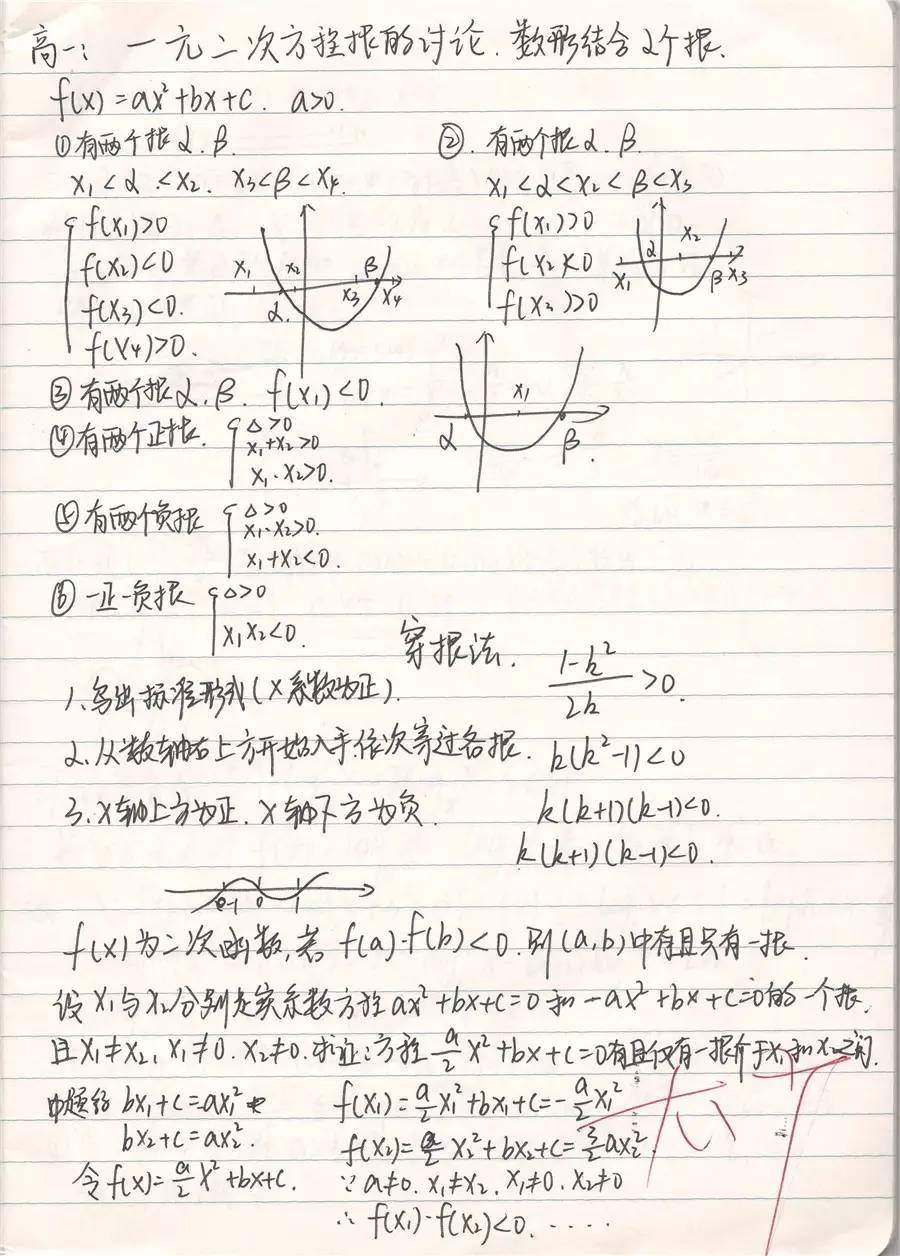 高一: 一元二次方程根的讨论. 数形结合 2个根.
f(x) = ax²+bx+c. a>0.
① 有两个根 α. β.
x₁ < α < x₂. x₃<β<x₄.
f(x₁)>0
f(x₂)<0
f(x₃)<0.
f(x₄)>0.
x₁ x₂ α x₃ β x₄
② . 有两个根 α. β.
x₁<α<x₂<β<x₃
f(x₁)>0
f(x₂)<0
f(x₂)>0
x₁ α x₂ β x₃
③ 有两个根 α. β. f(x₁)<0.
α x₁ β
④ 有两个正根.
△>0
x₁+x₂>0
x₁·x₂>0.
⑤ 有两个负根
△>0
x₁·x₂>0.
x₁+x₂<0.
⑥ 一正一负根
△>0
x₁x₂<0.
穿根法.
1. 写出标准形式(x系数为正).
2. 从数轴右上方开始入手依次穿过各根.
3. x轴上方为正. x轴下方为负.
(1-k²)/2k >0.
k(k²-1)<0
k(k+1)(k-1)<0.
k(k+1)(k-1)<0.
-1 0 1
f(x)为二次函数, 若 f(a)·f(b)<0. 则(a,b)中存且只有一根.
设 x₁与x₂分别是实系数方程 ax²+bx+c=0 和 -ax²+bx+c=0的一个根.
且 x₁≠x₂, x₁≠0. x₂≠0. 求证: 方程 a/2 x²+bx+c=0有且仅有一根介于x₁和x₂之间.
由题给 bx₁+c=ax₁²
bx₂+c=ax₂².
令 f(x)=a/2 x²+bx+c.
f(x₁)=a/2 x₁²+bx₁+c=-a/2 x₁²
f(x₂)=a/2 x₂²+bx₂+c=3/2 ax₂²
∵ a≠0. x₁≠x₂. x₁≠0. x₂≠0
∴ f(x₁)·f(x₂)<0. ....